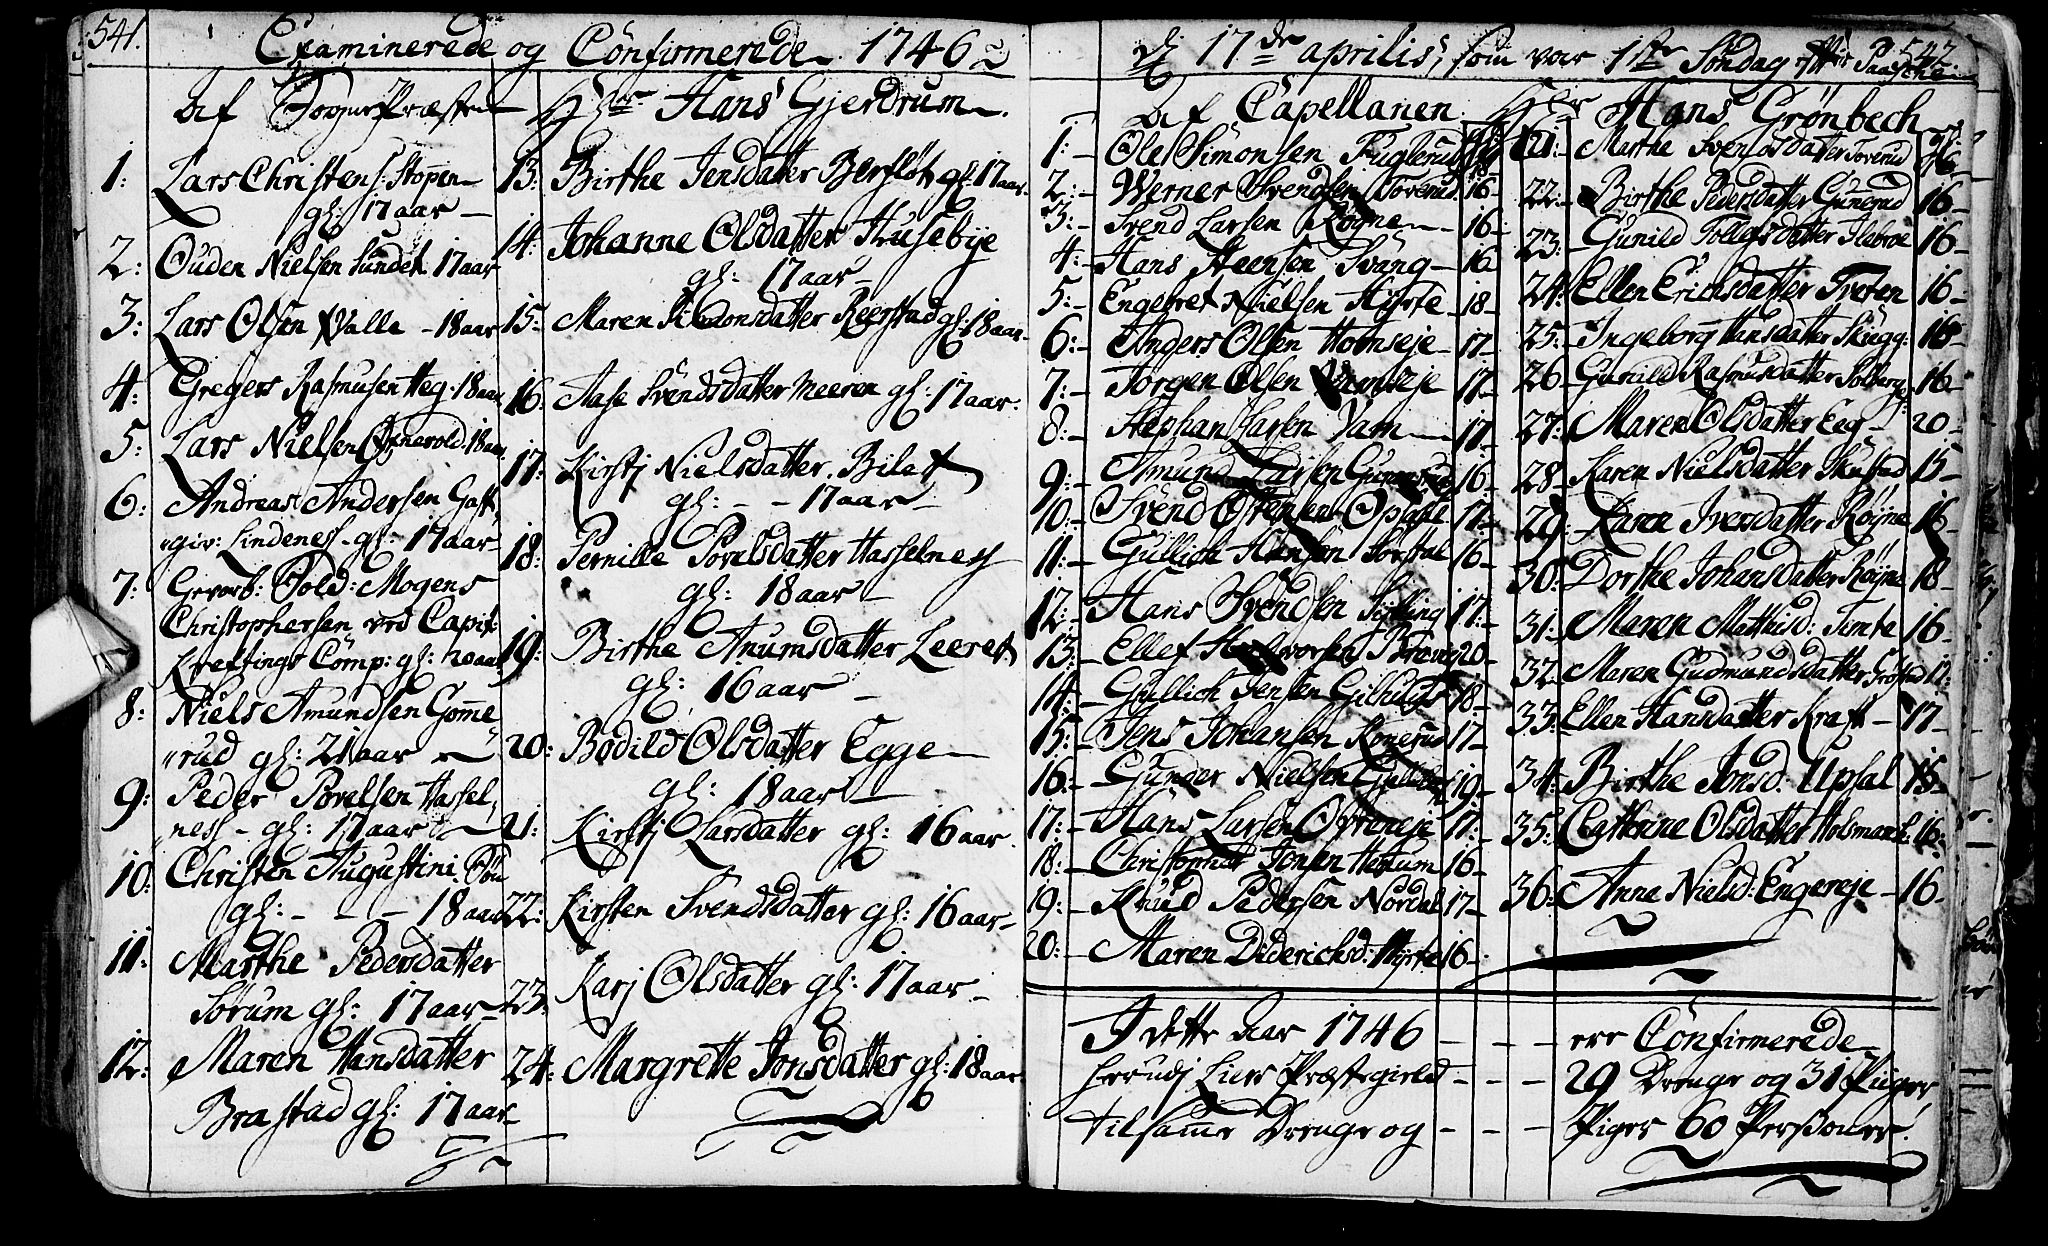 541.
Examinerede og Confirmerede 1746
Af Sogne Præsten Hr Hans Gjerdrum.
1: Lars Christens: Stopen
gl: 17 aar
2: Ouden Nielsen Sundet 17 aar
3: Lars Olsen Valle - 18 aar
4: Gregers Rasmusen Heg. 18 aar
5: Lars Nielsen 18 aar
6: Andreas Andersen Gast,
giv: Lindenes - gl: 17 aar
7: Gevorb: Sold: Mogens
Christophersen ved Capit:
Kreftings Comp: gl: 20 aar
8: Niels Amundsen Gom̄e
rud gl: 21 aar
9: Peder Povelsen Hassel,
ness - gl: 17 aar
10: Christen Augustini:
gl: - - - 18 aar
11: Marthe Pedersdatter
Sørum gl: 17 aar
12: Maren Hansdatter
Brastad gl: 17 aar
13: Birthe Jensdatter Berfløt gl: 17 aar
14: Johanne Olsdatter Husebÿe
gl: 17 aar
15: Maren Simonsdatter Reerstad gl: 18 aar
16: Aase Svendsdatter Meeren gl: 17 aar.
17: Kirstj Nielsdatter Bilet
gl: - - 17 aar
18: Pernille Povelsdatter Hasselness
gl: 18 aar
19: Birthe Anumsdatter Leeret
gl: 16 aar
20: Bodild Olsdatter Egge
gl: 18 aar
21: Kirstj Larsdatter gl: 16 aar.
22: Kirsten Svendsdatter gl: 16 aar
23: Karj Olsdatter gl: 17 aar
24: Margrette Jonsdatter gl: 18 aar
542
d 17de aprilis, som var 1ste Søndag efter Paaschen
Af Capellanen Hr Hans Grønbech
1: Ole Simonsen Fuglerud
2: Werner Svendsen Toverud 16
3: Svend Larsen Røgne 16
4: Hans Steensen Svang 16
5: Engebret Nielsen Hyrte 18
6: Anders Olsen Hornseje 17
7: Jørgen Olsen 17
8: Stephan Larsen Dam 17
9: Amund Larsen 16
10: Svend Opsal 17
11: Gullich Hansen 16
12: Hans Svendsen 17
13: Ellef Halvorsen 20
14: Gullich Jensen Gilhus 18
15: Jens Johansen 17
16: Gunder Nielsen 19
17: Hans Larsen 17
18: Jonsen 16
19: Knud Pedersen Nordal 17
20: Maren Diderichsd: Hyrte 16
21: Marthe Svensdatter Toverud 16
22: Birthe Pedersdatter Gunerud 16
23: Gunild 16
24: Ellen Erichsdatter Tveten 16
25: Ingeborg Hansdatter Skugg: 16
26: Gunild Rasmusdatter Solberg 16
27: Maren Olsdatter Eeg 20
28: Karen Nielsdatter 15
29: Karen Iversdatter Røÿne 16
30: Dorthe Johansdatter Røÿne 18
31: Maren Mathisd: Tinte 16
32: Maren Gudmundsdatter 17
33: Ellen Hansdatter Kraft 17
34: Birthe Jonsd. Upsal 15
35: Cathrine Olsdatter Holsmarch 16
36: Anne Nielsd: Engereje 16
I dette Aar 1746 - - - ere Confirmerede
herudj Liers Præstegield - - - 29 Drenge og 31 Piiger,
tilsam̄e Drenge og - - - Piger 60 Personer.